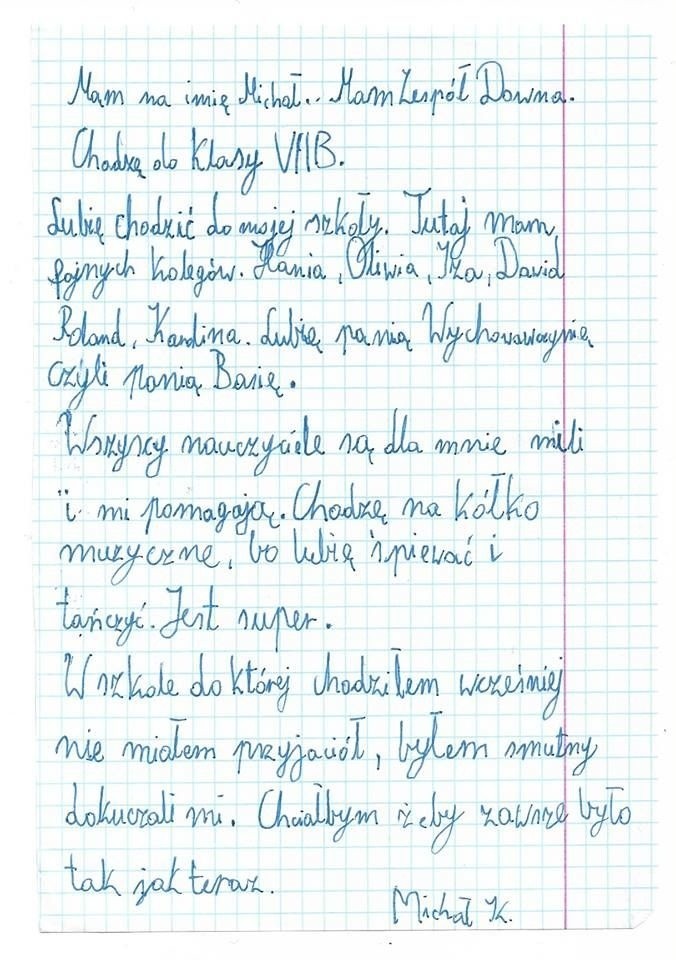 Mam na imię Michał.. Mam Zespół Downa.
Chodzę do klasy VIIB.
Lubię chodzić do mojej szkoły. Tutaj mam
fajnych kolegów. Hania, Oliwia, Iza, David
Roland, Karolina. Lubię panią Wychowawczynię
czyli panią Basię.
Wszyscy nauczyciele są dla mnie mili
i mi pomagają. Chodzę na kółko
muzyczne, bo lubię śpiewać i
tańczyć. Jest super.
W szkole do której chodziłem wcześniej
nie miałem przyjaciół, byłem smutny
dokuczali mi. Chciałbym żeby zawsze było
tak jak teraz.
Michał K.